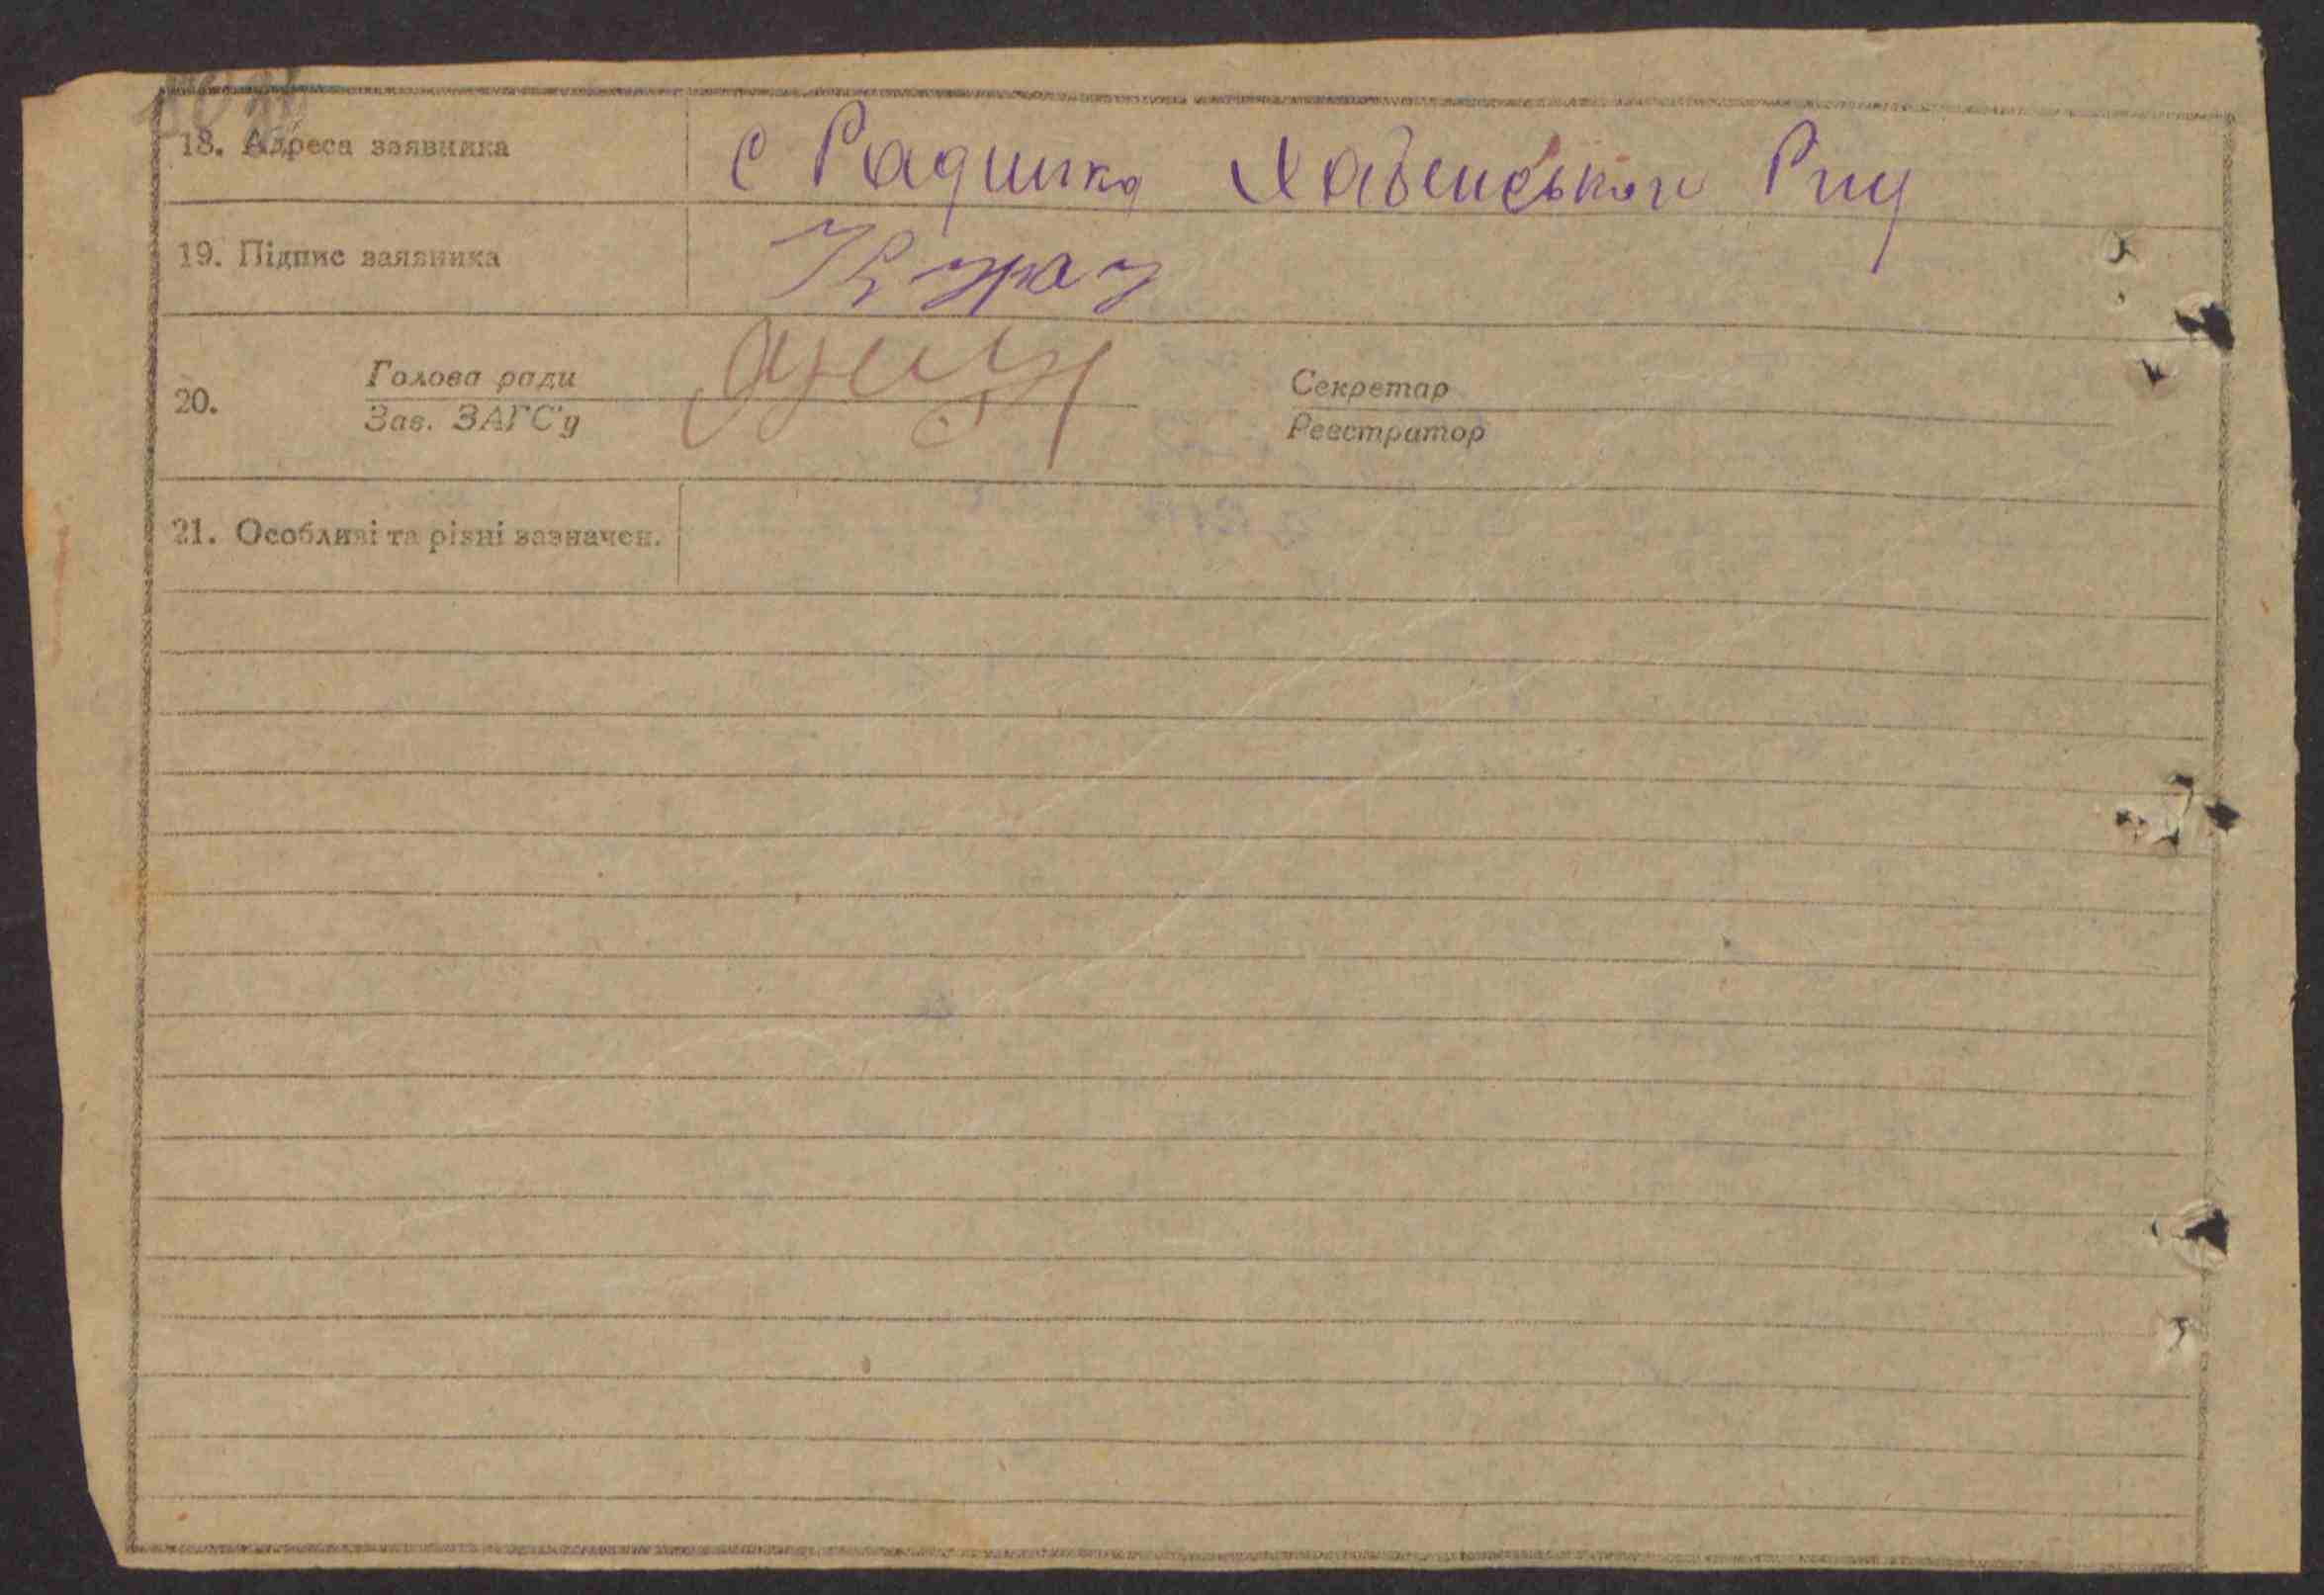 18. Адреса заявника
с Радинка Хабенського Рну
19. Підпис заявника
20. Голова ради
Зав. ЗАГС'у
Секретар
Реєстратор
21. Особливі та різні зазначен.